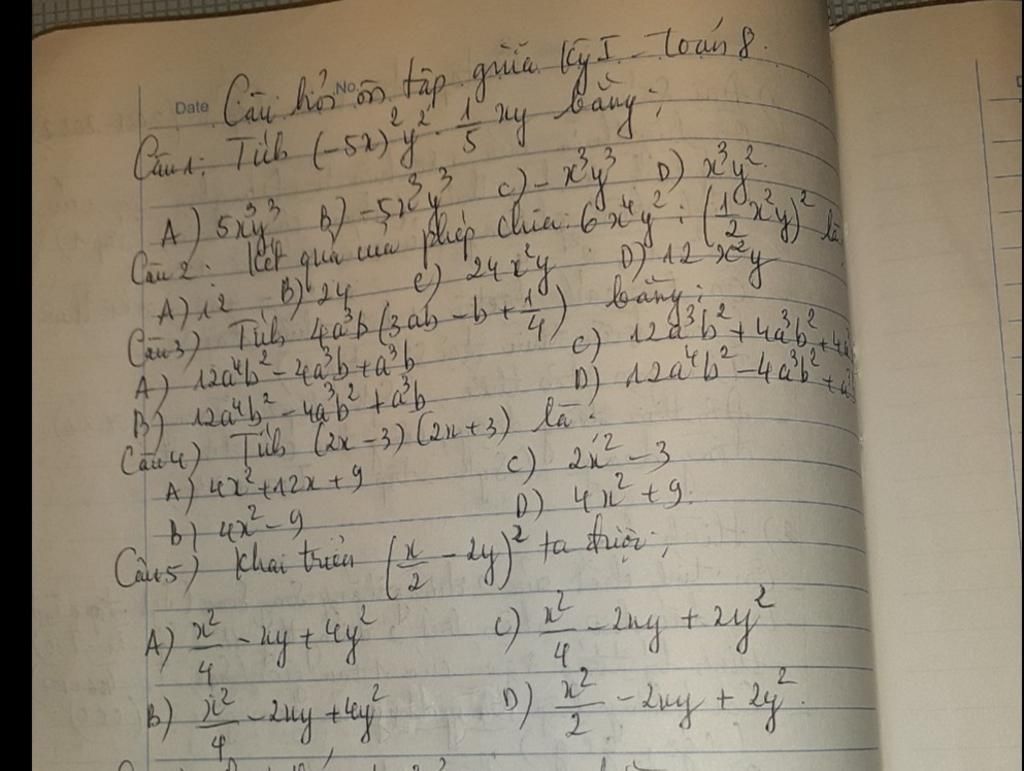 Date No.
Câu hỏi ôn tập giữa kỳ I - Toán 8.
Câu 1: Tính (-5x)²y² · 1/5 xy bằng;
A) 5x³y³ B) -5x³y³ C) -x³y³ D) x³y².
Câu 2: Kết quả của phép chia: 6x⁴y² : (1/2 x²y)² là
A) 12 B) 24 C) 24x²y D) 12x²y
Câu 3) Tính 4a³b(3ab - b + 1/4) bằng:
A) 12a⁴b² - 4a³b + a³b C) 12a³b² + 4a³b² + 4a
B) 12a⁴b² - 4a³b² + a³b D) 12a⁴b² - 4a³b² + a³
Câu 4) Tính (2x - 3)(2x + 3) là:
A) 4x² + 12x + 9 C) 2x² - 3
B) 4x² - 9 D) 4x² + 9.
Câu 5) Khai triển (x/2 - 2y)² ta được;
A) x²/4 - xy + 4y² C) x²/4 - 2xy + 2y²
B) x²/4 - 2xy + 4y² D) x²/2 - 2xy + 2y².